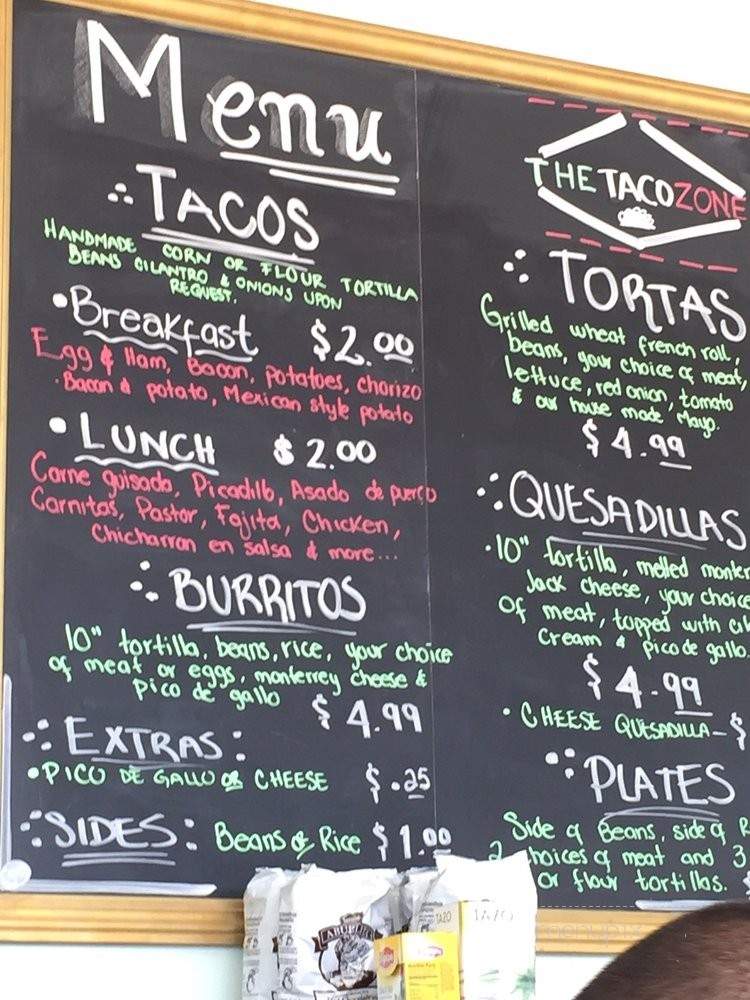 Menu
TACOS
HANDMADE CORN OR FLOUR TORTILLA
BEANS CILANTRO & ONIONS UPON
REQUEST.
Breakfast $2.00
Egg & Ham, Bacon, potatoes, chorizo
Bacon & potato, Mexican style potato
LUNCH $2.00
Carne guisada, Picadillo, Asado de puerco
Carnitas, Pastor, Fajita, Chicken,
Chicharran en salsa & more...
BURRITOS
10" tortilla, beans, rice, your choice
of meat or eggs, monterrey cheese &
pico de gallo
$4.99
EXTRAS:
PICO DE GALLO OR CHEESE $.25
SIDES: Beans or Rice $1.00
THE TACO ZONE
TORTAS
Grilled wheat french roll,
beans, your choice of meat,
lettuce, red onion, tomato
& our house made Mayo.
$4.99
QUESADILLAS
10" tortilla, melted
Jack cheese, your choice
of meat, topped with
cream & pico de gallo.
$4.99
CHEESE QUESADILLA - $
PLATES
Side of Beans, side of
2 choices of meat and 3
or flour tortillas.
TAZO
TAZO